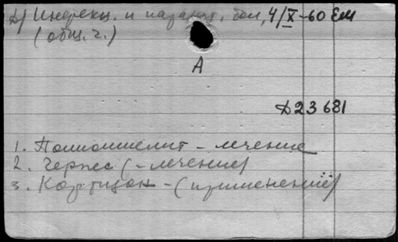 Д) Инфекц. и паразит. бол., 4/X-60 Ем
(общ. ч.)
А
Д23681
1. Полиомиелит - лечение
2. Герпес (- лечение)
3. Кортизон - (применение)